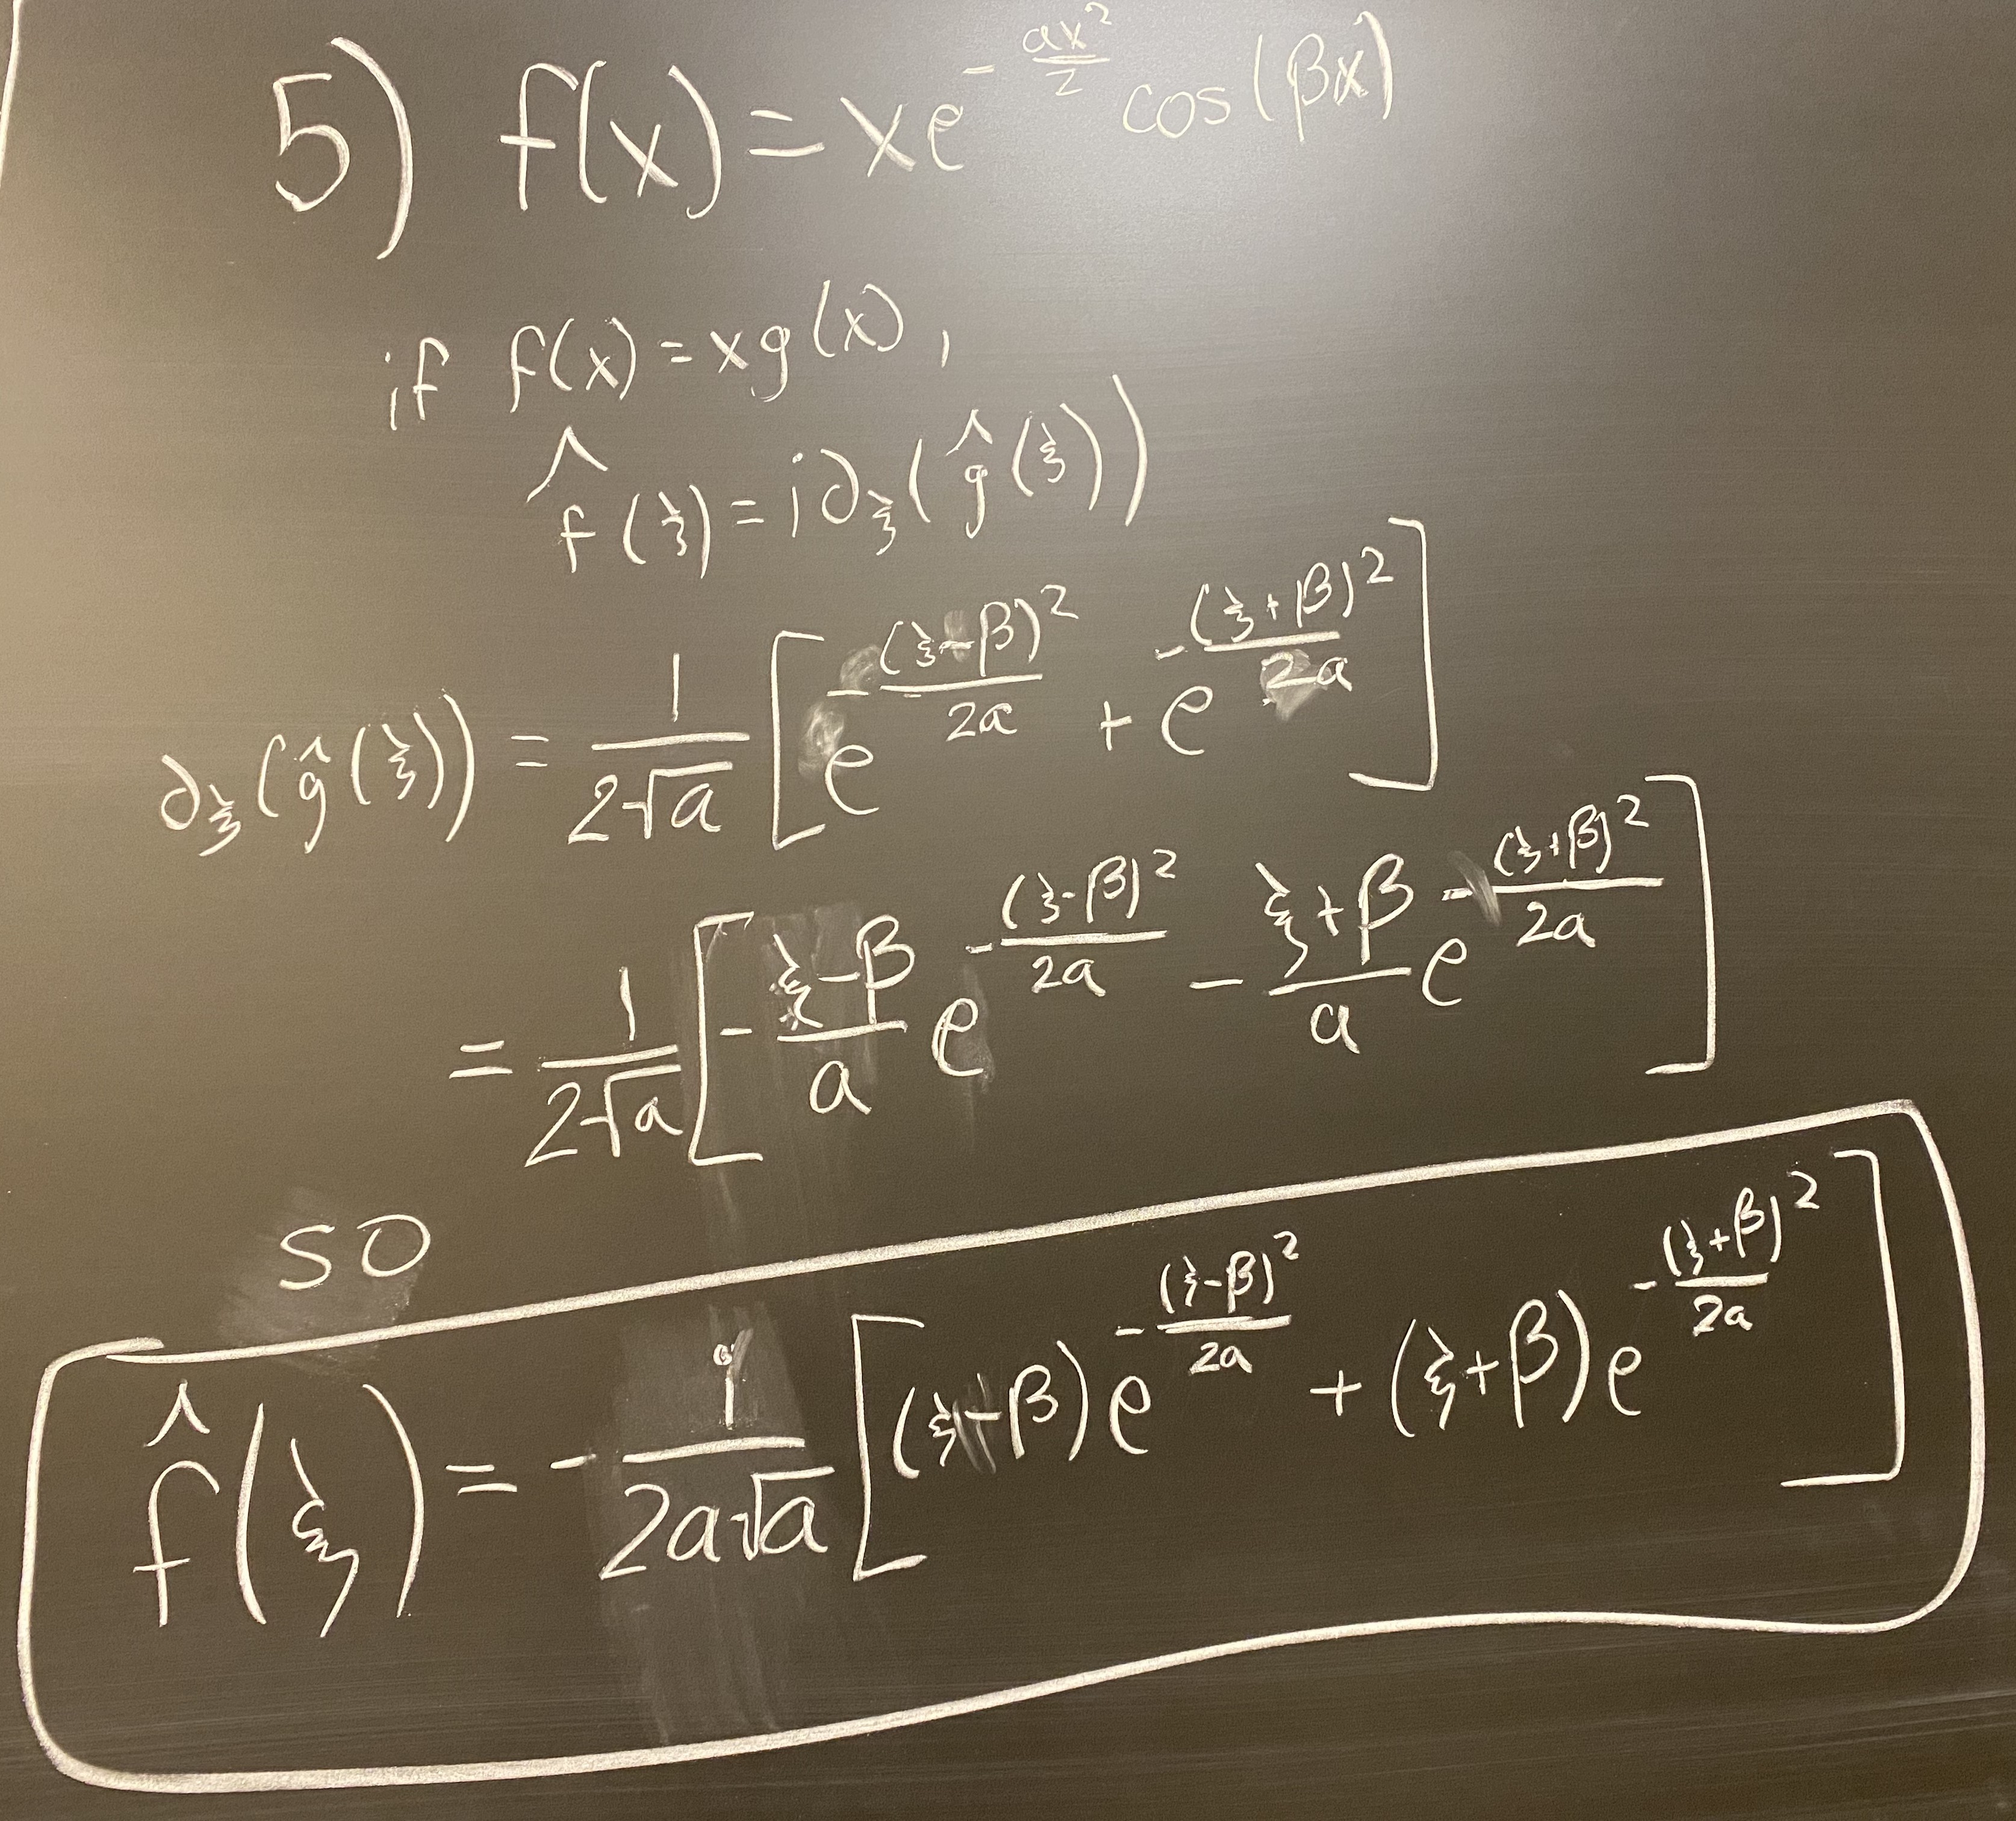 5) f(x) = xe^{-\frac{ax^2}{2}} cos(βx)
if f(x) = xg(x),
\hat{f}(ξ) = i∂_ξ(\hat{g}(ξ))
∂_ξ(\hat{g}(ξ)) = \frac{1}{2\sqrt{a}} [e^{-\frac{(ξ-β)^2}{2a}} + e^{-\frac{(ξ+β)^2}{2a}}]
= \frac{1}{2\sqrt{a}} [-\frac{ξ-β}{a} e^{-\frac{(ξ-β)^2}{2a}} - \frac{ξ+β}{a} e^{-\frac{(ξ+β)^2}{2a}}]
so
\hat{f}(ξ) = -\frac{i}{2a\sqrt{a}} [(ξ-β)e^{-\frac{(ξ-β)^2}{2a}} + (ξ+β)e^{-\frac{(ξ+β)^2}{2a}}]